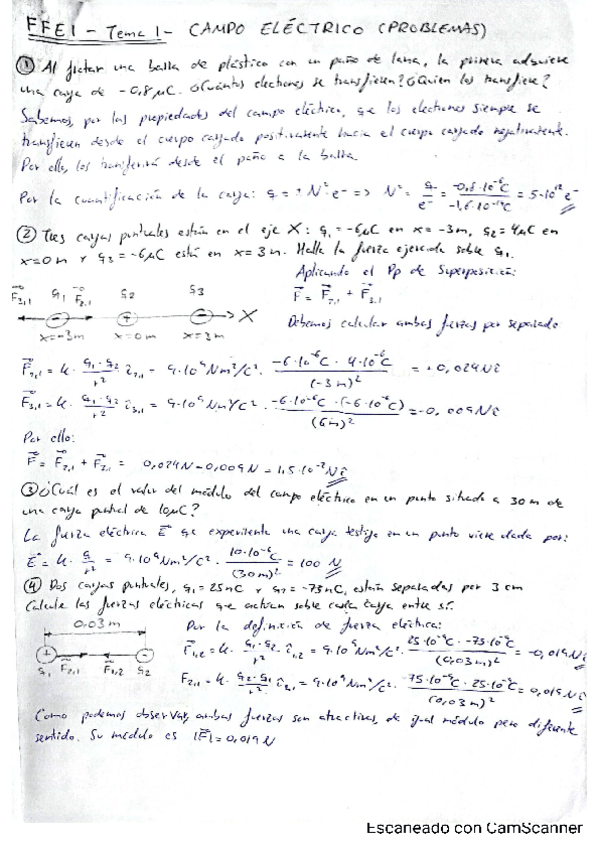 FFEI - Tema 1 - CAMPO ELÉCTRICO (PROBLEMAS)
① Al frotar una barra de plástico con un paño de lana, la primera adquiere
una carga de -0,8 μC. ¿Cuántos electrones se transfieren? ¿Quién los transfiere?
Sabemos, por las propiedades del campo eléctrico, que los electrones siempre se
transfieren desde el cuerpo cargado positivamente hacia el cuerpo cargado negativamente.
Por ello, los transferirá desde el paño a la barra.
Por la cuantificación de la carga: q = ± N · e⁻ => Nº = q/e⁻ = -0,8·10⁻⁶C / -1,6·10⁻¹⁹C = 5·10¹² e⁻
② Tres cargas puntuales están en el eje X: q₁ = -6μC en x = -3m, q₂ = 4μC en
x=0m y q₃ = -6μC está en x = 3m. Halla la fuerza ejercida sobre q₁.
Aplicando el Pp de Superposición:
F⃗ = F⃗₂,₁ + F⃗₃,₁
F⃗₃,₁ q₁ F⃗₂,₁ q₂ q₃
- + - X
x=-3m x=0m x=3m
Debemos calcular ambas fuerzas por separado
F⃗₂,₁ = k · q₁·q₂/r² r̂₂,₁ = 9·10⁹ Nm²/C² · -6·10⁻⁶C · 4·10⁻⁶C / (-3m)² = +0,024 N î
F⃗₃,₁ = k · q₁·q₃/r² r̂₃,₁ = 9·10⁹ Nm²/C² · -6·10⁻⁶C · (-6·10⁻⁶C) / (6m)² = -0,009 N î
Por ello:
F⃗ = F⃗₂,₁ + F⃗₃,₁ = 0,024N - 0,009N = 1,5·10⁻² N î
③ ¿Cuál es el valor del módulo del campo eléctrico en un punto situado a 30 m de
una carga puntual de 10μC?
La fuerza eléctrica E⃗ que experimenta una carga testigo en un punto viene dada por:
E⃗ = k · q/r² = 9·10⁹ Nm²/C² · 10·10⁻⁶C / (30m)² = 100 N
④ Dos cargas puntuales, q₁ = 25nC y q₂ = -75nC, están separadas por 3 cm
Calcule las fuerzas eléctricas que actúan sobre cada carga entre sí.
0.03m
+ -
q₁ F⃗₂,₁ F⃗₁,₂ q₂
Por la definición de fuerza eléctrica:
F⃗₁,₂ = k · q₁·q₂/r² r̂₁,₂ = 9·10⁹ Nm²/C² · 25·10⁻⁹C · -75·10⁻⁹C / (0,03m)² = -0,019 N î
F₂,₁ = k · q₂·q₁/r² r̂₂,₁ = 9·10⁹ Nm²/C² · -75·10⁻⁹C · 25·10⁻⁹C / (0,03m)² = 0,019 N î
Como podemos observar, ambas fuerzas son atractivas, de igual módulo pero diferente
sentido. Su módulo es |F⃗| = 0,019 N
Escaneado con CamScanner